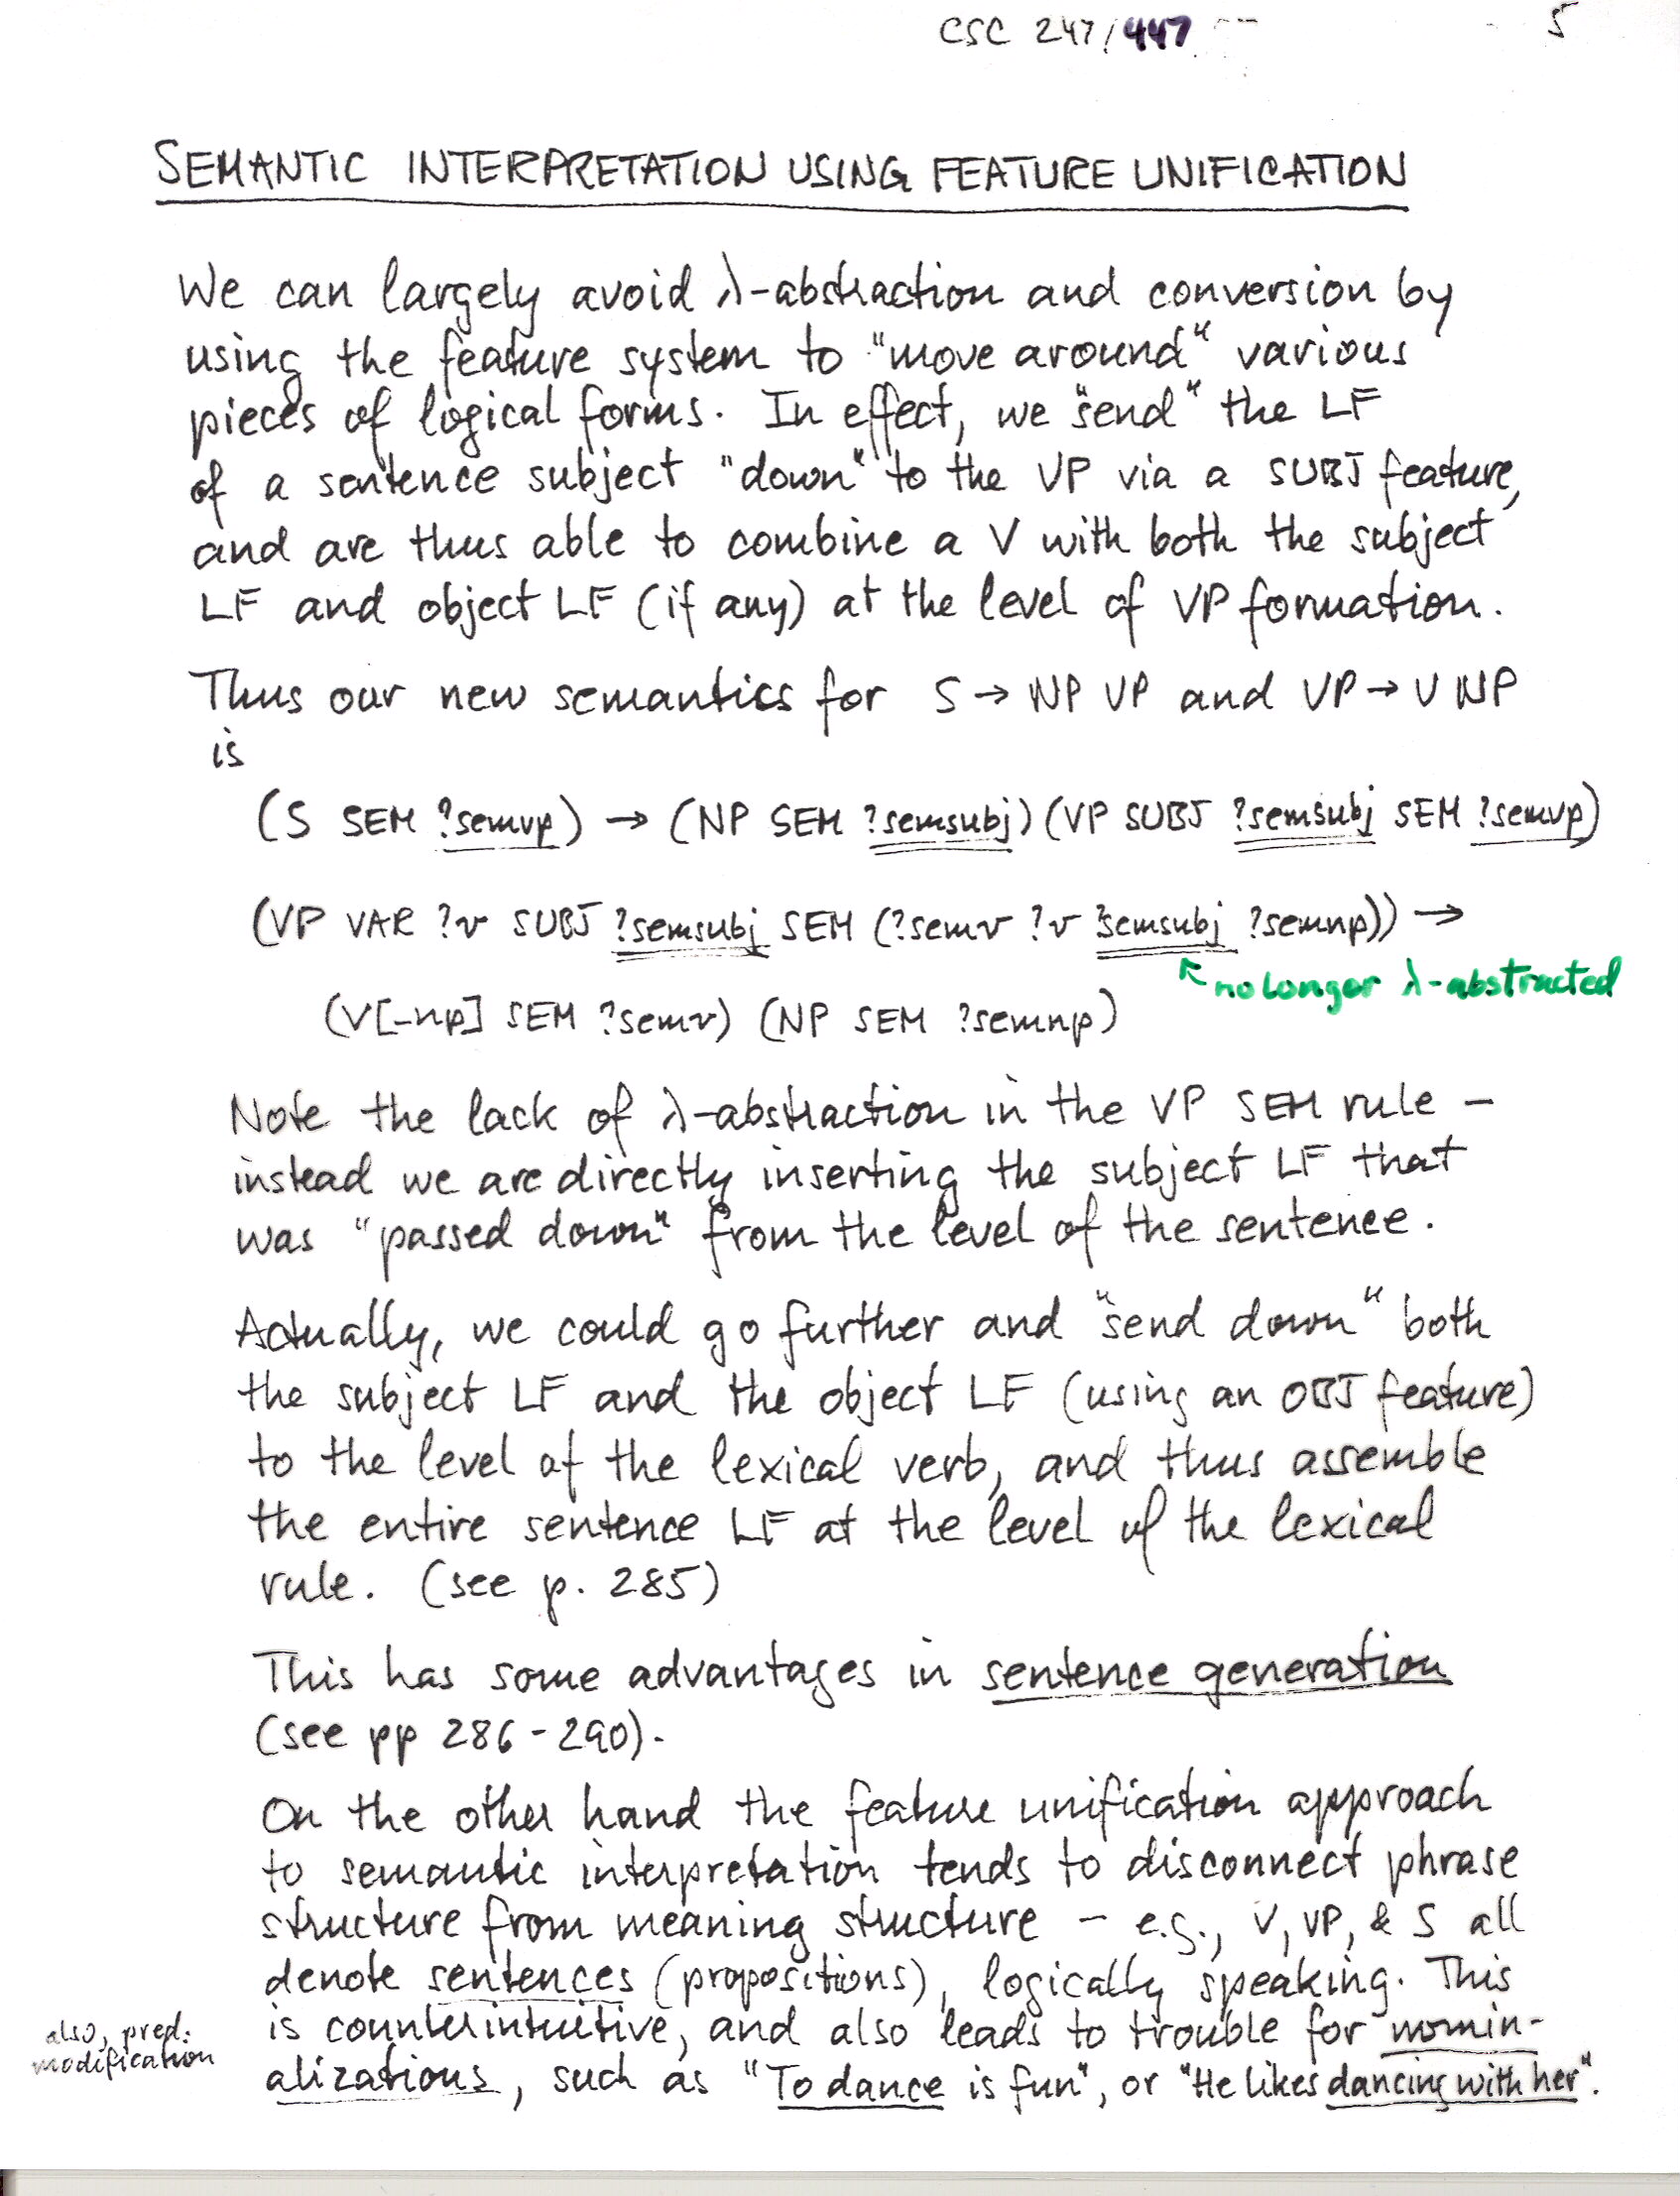 CSC 247/447
5
SEMANTIC INTERPRETATION USING FEATURE UNIFICATION
We can largely avoid λ-abstraction and conversion by
using the feature system to "move around" various
pieces of logical forms. In effect, we "send" the LF
of a sentence subject "down" to the VP via a SUBJ feature,
and are thus able to combine a V with both the subject
LF and object LF (if any) at the level of VP formation.
Thus our new semantics for S → NP VP and VP → V NP
is
(S SEM ?semvp) → (NP SEM ?semsubj) (VP SUBJ ?semsubj SEM ?semvp)
(VP VAR ?v SUBJ ?semsubj SEM (?semv ?v ?semsubj ?semnp)) →
↖ no longer λ-abstracted
(V[_np] SEM ?semv) (NP SEM ?semnp)
Note the lack of λ-abstraction in the VP SEM rule –
instead we are directly inserting the subject LF that
was "passed down" from the level of the sentence.
Actually, we could go further and "send down" both
the subject LF and the object LF (using an OBJ feature)
to the level of the lexical verb, and thus assemble
the entire sentence LF at the level of the lexical
rule. (see p. 285)
This has some advantages in sentence generation
(see pp 286-290).
On the other hand the feature unification approach
to semantic interpretation tends to disconnect phrase
structure from meaning structure – e.g., V, VP, & S all
denote sentences (propositions), logically speaking. This
is counterintuitive, and also leads to trouble for nomin-
alizations, such as "To dance is fun", or "He likes dancing with her".
also, pred.
modification